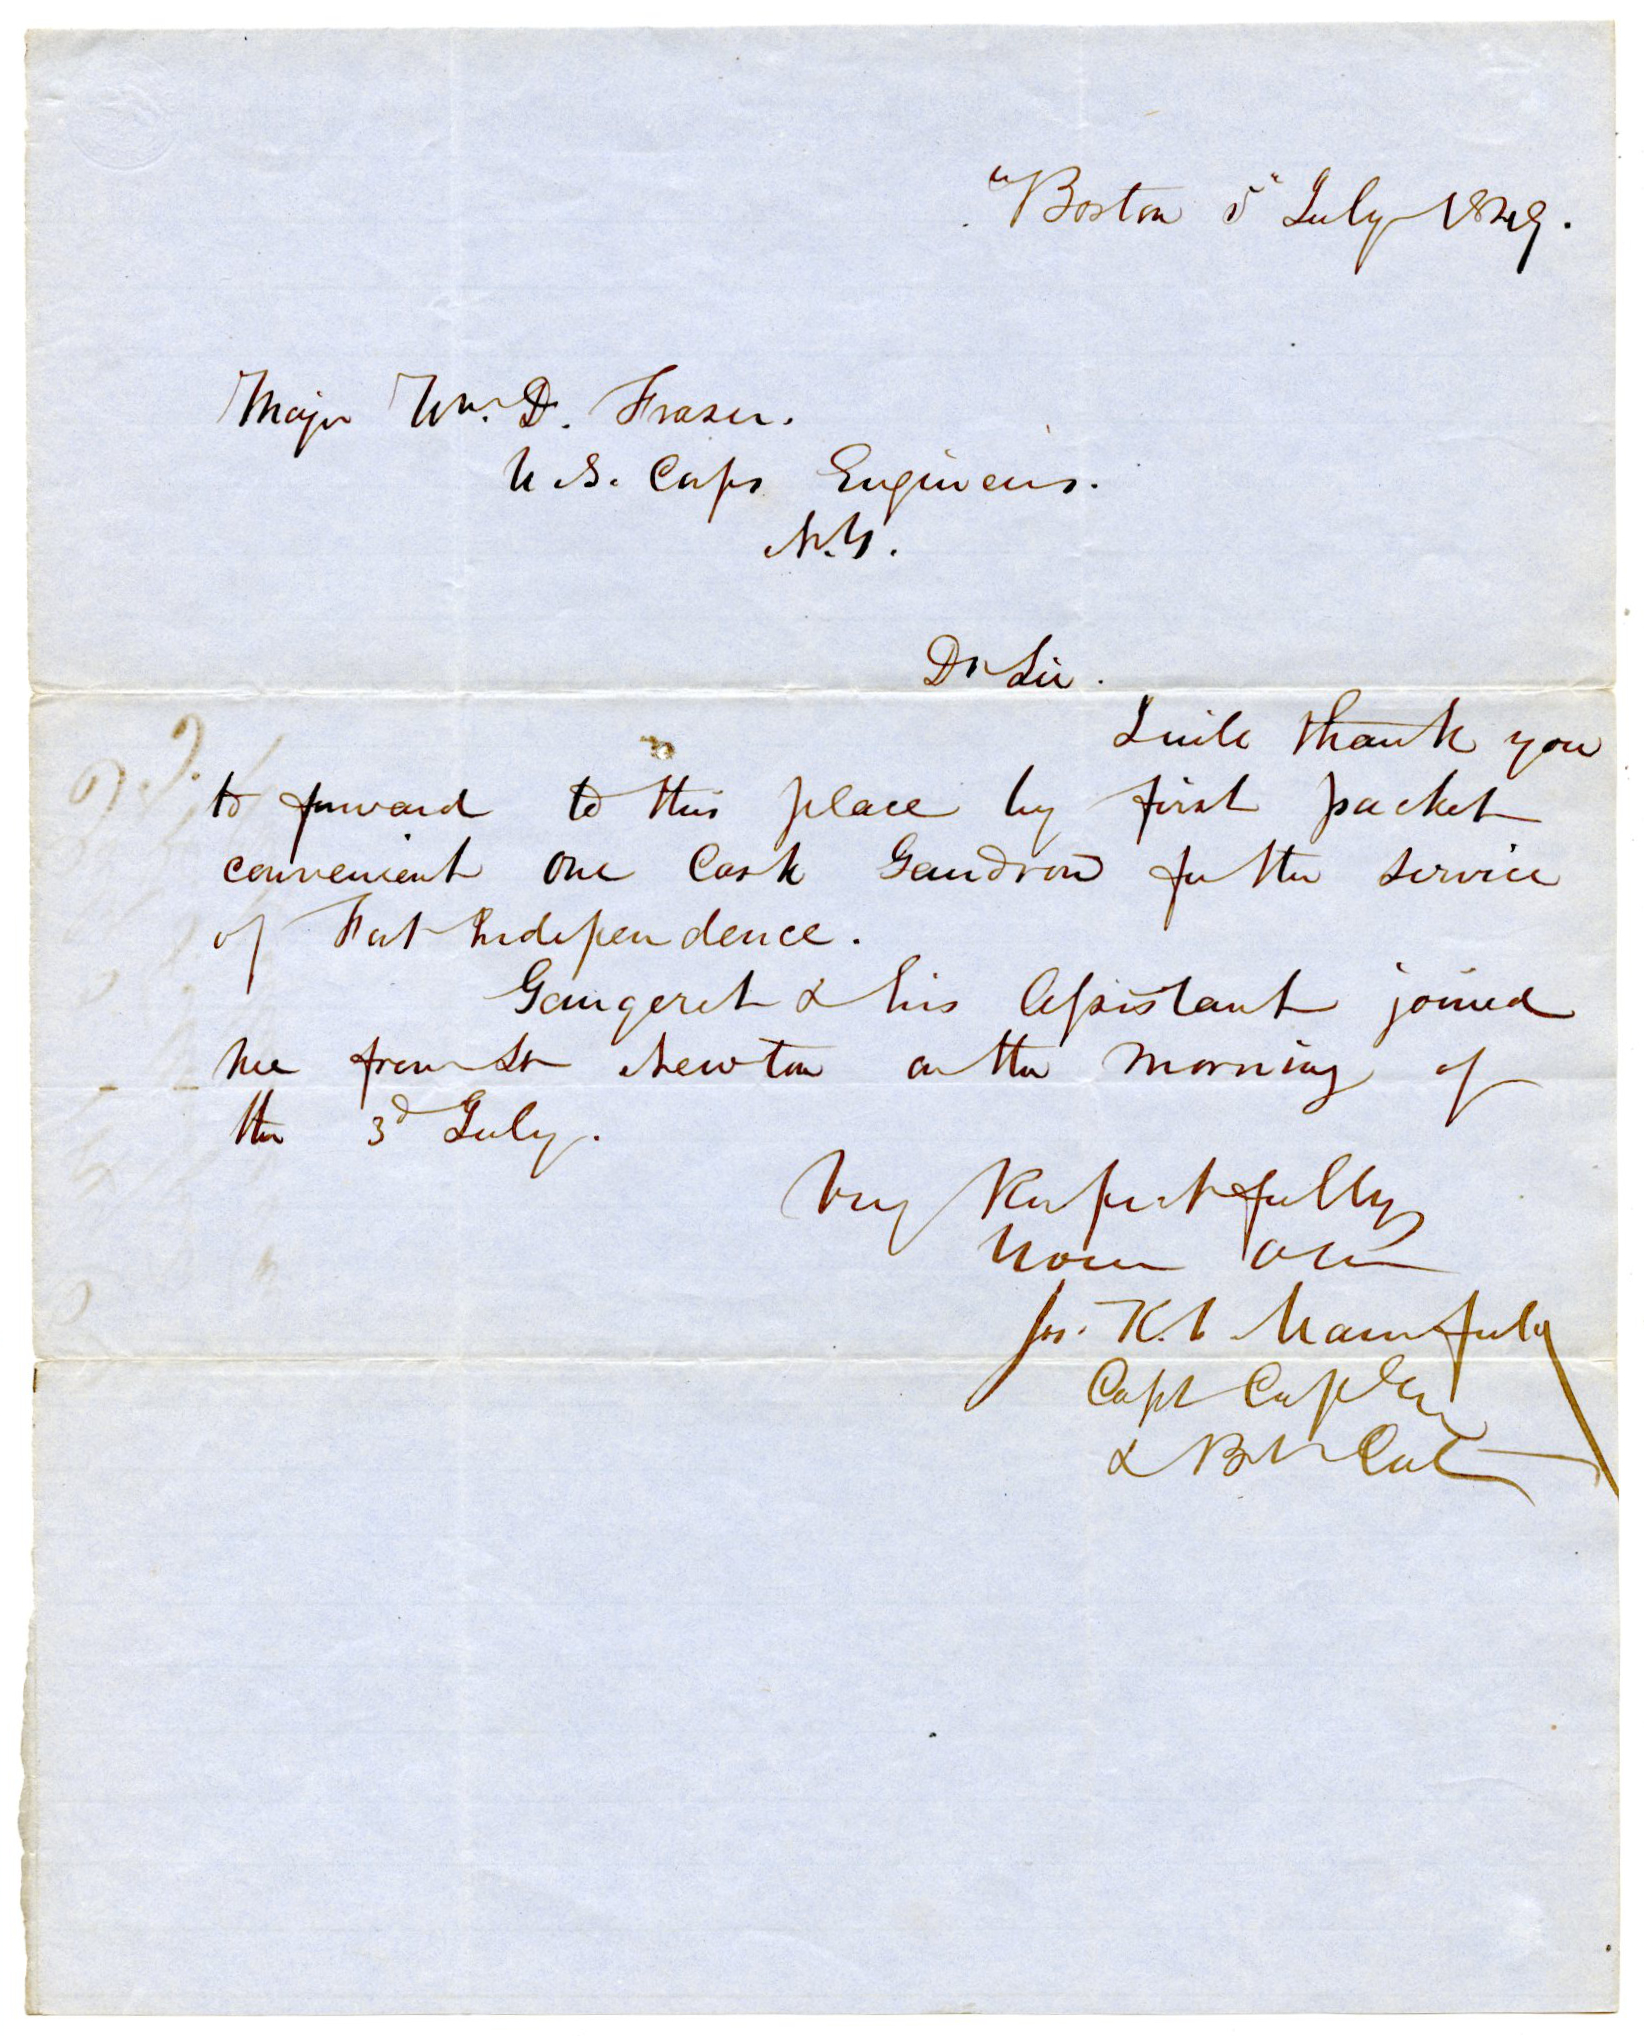 Boston 5" July 1849.
Major Wm. D. Fraser.
U.S. Corps Engineers.
N.Y.
Dr Sir.
I will thank you
to forward to this place by first packet
convenient one Cask Goudron for the service
of Fort Independence.
& his Assistant joined
me from Lt Newton on the morning of
the 3d July.
Very Respectfully
Your Obt
Jos. K. F. Mansfield
Capt Corps Eng
& Bvt Col